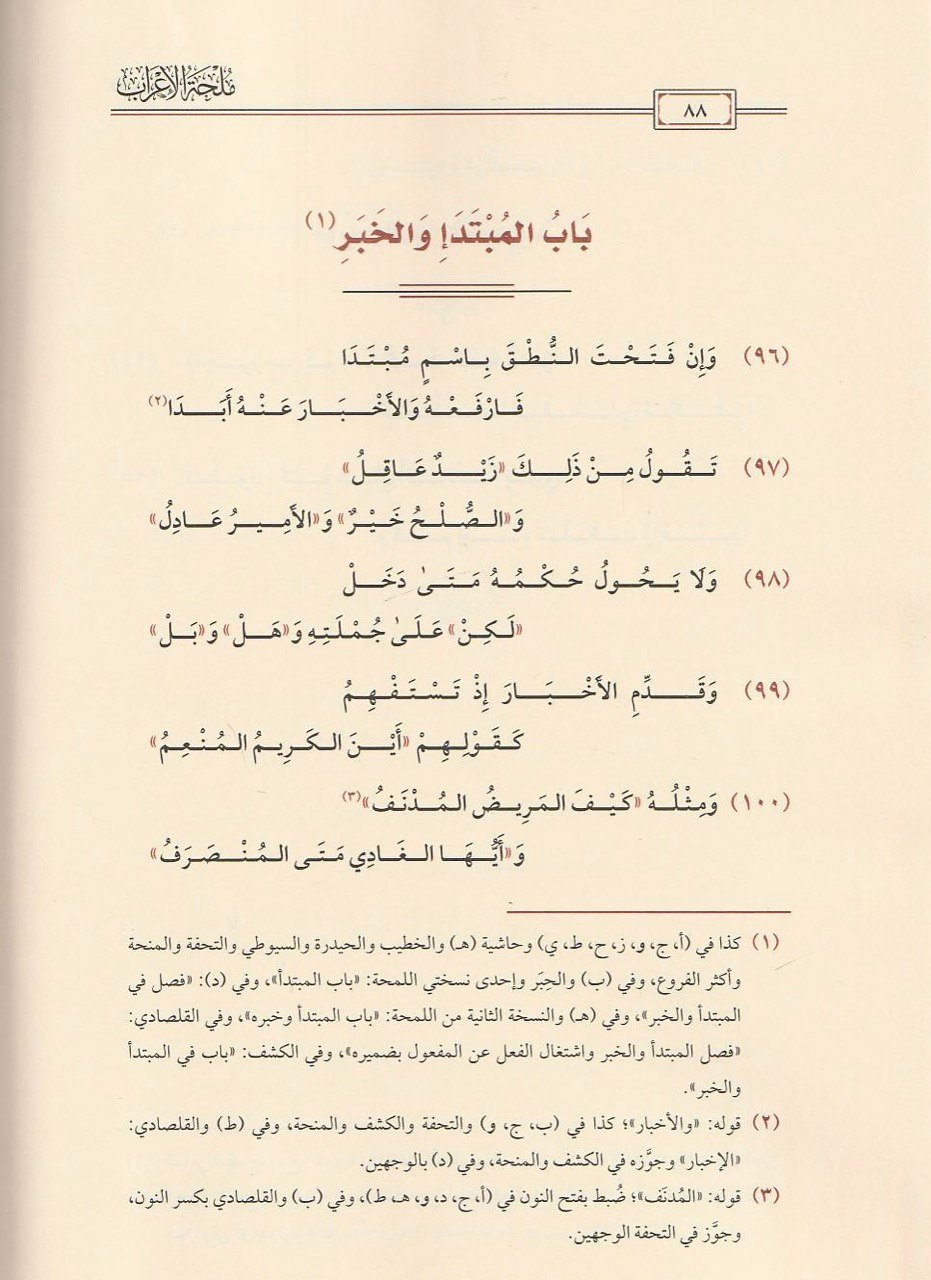 مُلْحَةُ الإِعْرَابِ
٨٨
بَابُ المُبْتَدَإِ وَالخَبَرِ (١)
(٩٦) وَإِنْ فَتَحْتَ النُّطْقَ بِاسْمٍ مُبْتَدَا
فَارْفَعْهُ وَالأَخْبَارَ عَنْهُ أَبَدَا (٢)
(٩٧) تَقُولُ مِنْ ذَلِكَ «زَيْدٌ عَاقِلُ»
وَ«الصُّلْحُ خَيْرٌ» وَ«الأَمِيرُ عَادِلُ»
(٩٨) وَلَا يَحُولُ حُكْمُهُ مَتَىٰ دَخَلْ
«لَكِنْ» عَلَىٰ جُمْلَتِهِ وَ«هَلْ» وَ«بَلْ»
(٩٩) وَقَدِّمِ الأَخْبَارَ إِذْ تَسْتَفْهِمُ
كَقَوْلِهِمْ «أَيْنَ الكَرِيمُ المُنْعِمُ»
(١٠٠) وَمِثْلُهُ «كَيْفَ المَرِيضُ المُدْنَفُ» (٣)
وَ«أَيُّهَا الغَادِي مَتَى المُنْصَرَفُ»
(١) كذا في (أ، ج، و، ز، ح، ط، ي) وحاشية (هـ) والخطيب والحيدرة والسيوطي والتحفة والمنحة
وأكثر الفروع، وفي (ب) والحِبَر وإحدى نسختي اللمحة: «باب المبتدأ»، وفي (د): «فصل في
المبتدأ والخبر»، وفي (هـ) والنسخة الثانية من اللمحة: «باب المبتدأ وخبره»، وفي القلصادي:
«فصل المبتدأ والخبر واشتغال الفعل عن المفعول بضميره»، وفي الكشف: «باب في المبتدأ
والخبر».
(٢) قوله: «والأخبار»؛ كذا في (ب، ج، و) والتحفة والكشف والمنحة، وفي (ط) والقلصادي:
«الإخبار» وجوَّزه في الكشف والمنحة، وفي (د) بالوجهين.
(٣) قوله: «المُدنَف»؛ ضُبط بفتح النون في (أ، ج، د، و، هـ، ط)، وفي (ب) والقلصادي بكسر النون،
وجوَّز في التحفة الوجهين.